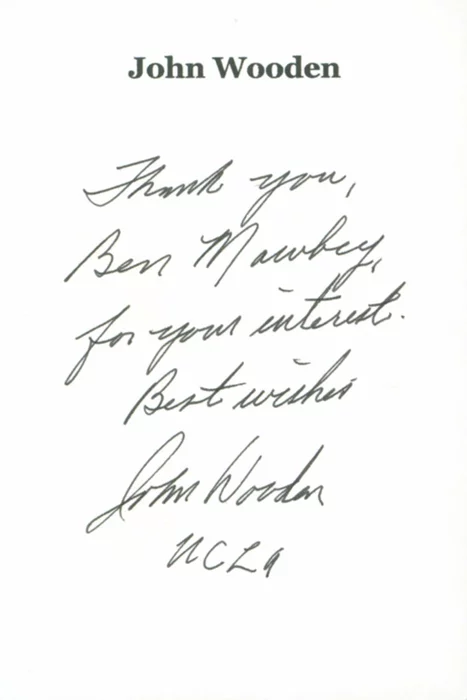 John Wooden
Thank you,
Ben Mawbey,
for your interest.
Best wishes
John Wooden
UCLA